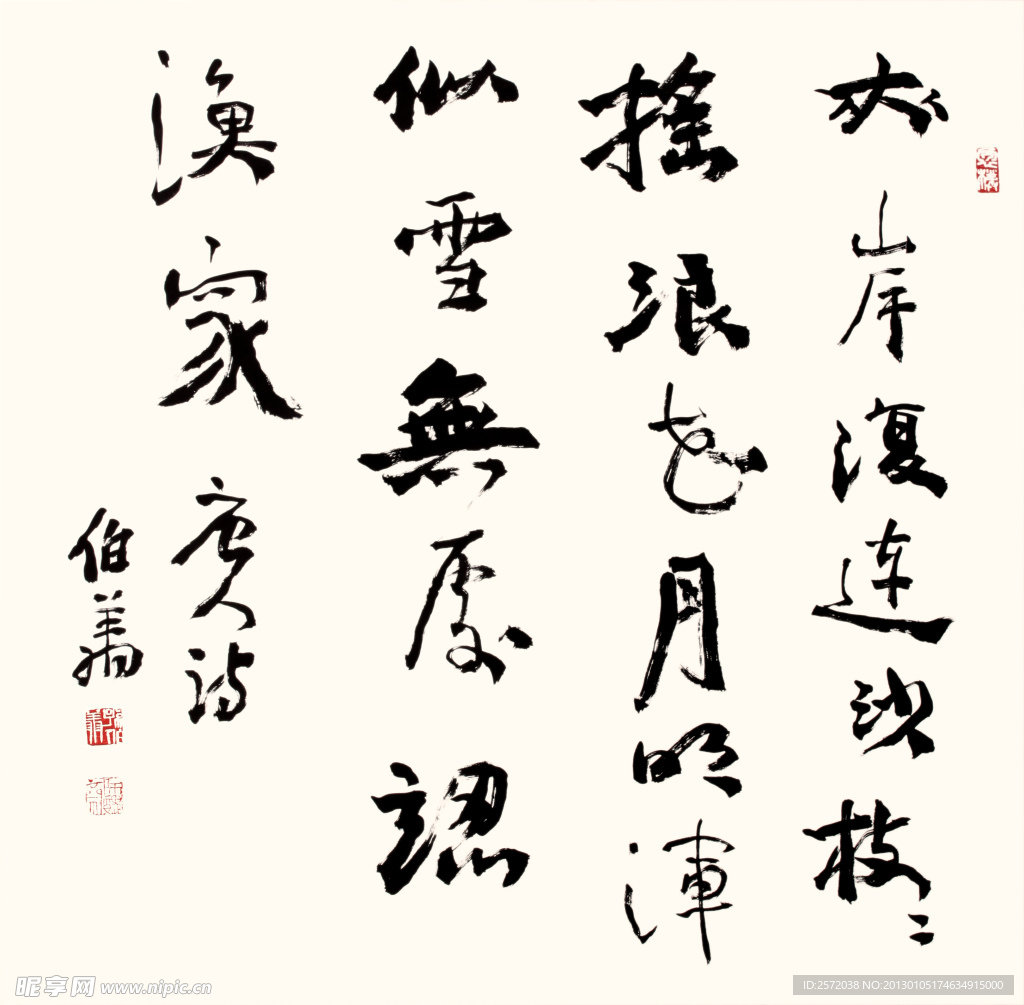 夾岸復連沙枝〻
搖浪花月明渾
似雪無處認
漁家 唐人詩
伯翔
昵享网 www.nipic.cn
ID:2572038 NO:20130105174634915000